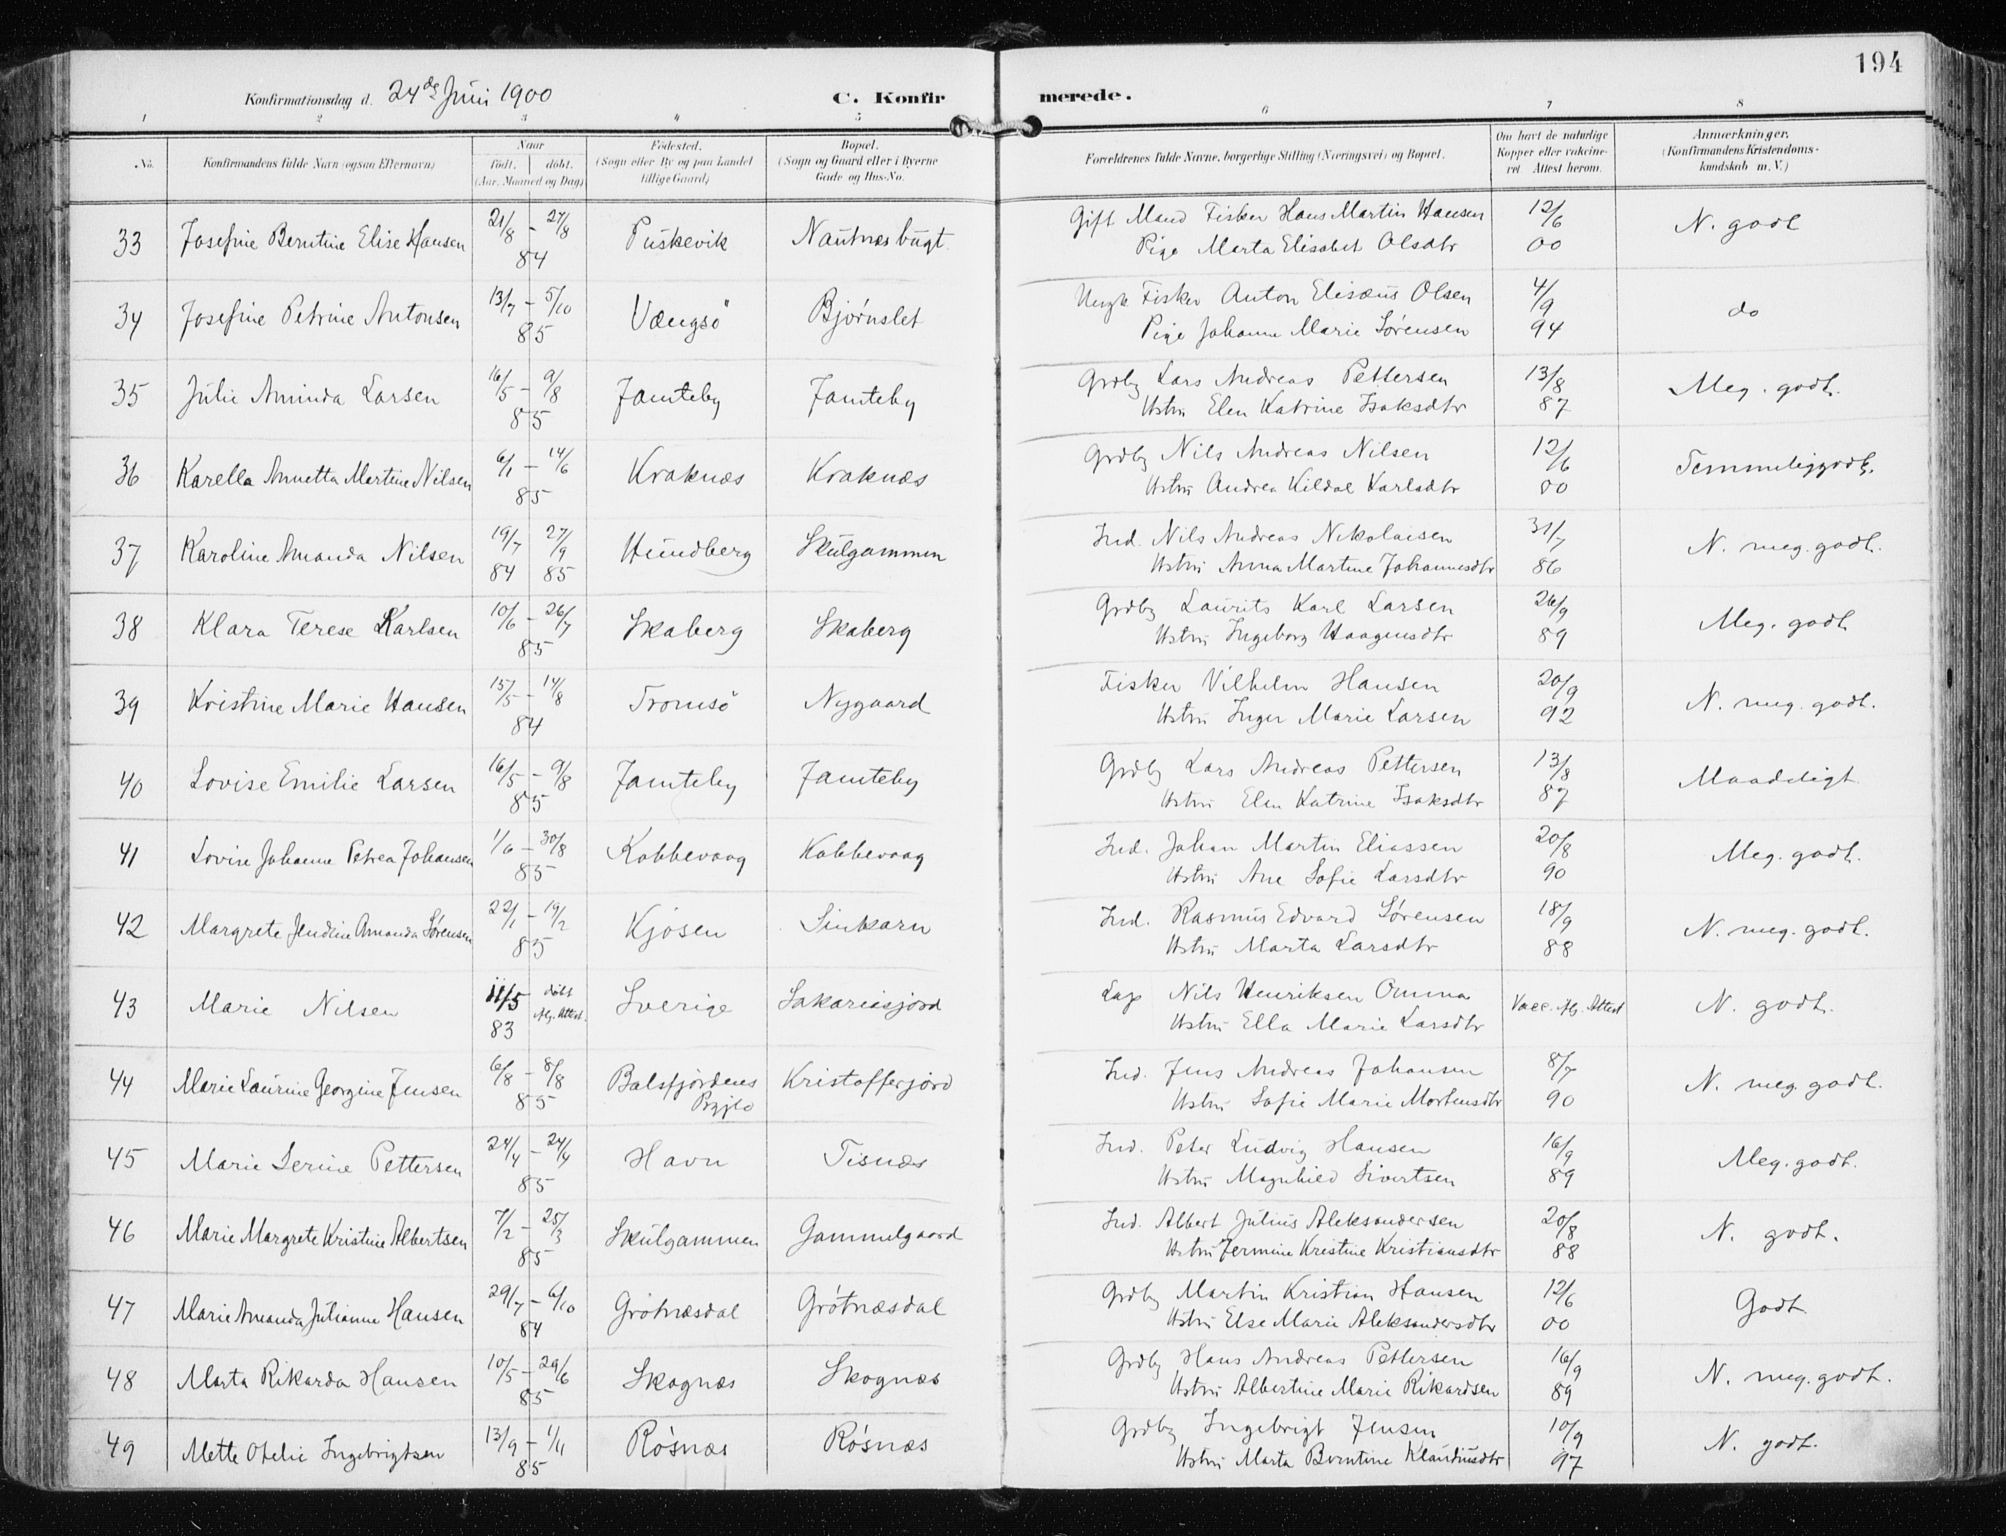 194
Konfirmationsdag d. 24de Juni 1900
C. Konfirmerede.
1 2 3 4 5 6 7 8
No. Konfirmandens fulde Navn (ogsaa Efternavn) Naar født, døbt. (Aar, Maaned og Dag) Fødested. (Sogn eller By og paa Landet tillige Gaard) Bopæl. (Sogn og Gaard eller i Byerne Gade og Hus-No. Forældrenes fulde Navne, borgerlige Stilling (Næringsvei) og Bopæl. Om havt de naturlige Kopper eller vakcineret. Attest herom. Anmærkninger. (Konfirmandens Kristendomskundskab m. V.)
33 Josefine Berntine Elise Hansen 21/8 - 27/8 84 Puskevik Nautnesbugt Gift Mand Fisker Hans Martin Hansen 12/6 N. godt
Pige Marta Elisabet Olsdtr 00
34 Josefine Petrine Antonsen 13/7 - 5/10 85 Vængsö Bjørnslet Ungk Fisker Anton Elisæus Olsen 4/9 do
Pige Johanne Marie Sørensen 94
35 Julie Aminda Larsen 16/5 - 9/8 85 Jamteby Jamteby Grdby Lars Andreas Pettersen 13/8 Meg. godt.
Ustru Elen Katrine Isaksdtr 87
36 Karella Annetta Martine Nilsen 6/1 - 14/6 85 Kraknæs Kraknæs Grdby Nils Andreas Nilsen 12/6 Temmelig godt.
Ustru Andrea Kildal Karlsdtr 00
37 Karoline Amanda Nilsen 19/7 84 27/9 85 Hundberg Skulgammen Ind. Nils Andreas Nikolaisen 31/7 N. meg. godt.
Ustru Anna Martine Johannesdtr 86
38 Klara Terese Karlsen 10/6 - 26/7 85 Skaberg Skaberg Grdby Laurits Karl Larsen 26/9 Meg. godt
Ustru Ingeborg Haagensdtr 89
39 Kristine Marie Hansen 15/5 - 14/8 84 Tromsö Nygaard Fisker Vilhelm Hansen 20/9 N. meg. godt.
Ustru Inger Marie Larsen 92
40 Lovise Emilie Larsen 16/5 - 9/8 85 Jamteby Jamteby Grdby Lars Andreas Pettersen 13/8 Maadeligt
Ustru Elen Katrine Isaksdtr 87
41 Lovise Johanne Petrea Johansen 1/6 - 30/8 85 Kobbevaag Kobbevaag Ind. Johan Martin Eliassen 20/8 Meg. godt.
Ustru Ane Sofie Larsdtr 90
42 Margrete Jendine Amanda Sørensen 22/1 - 19/2 85 Kjosen Sinkarn Ind. Rasmus Edvard Sørensen 18/9 N. meg. godt.
Ustru Marta Larsdtr 88
43 Marie Nilsen 11/5 83 døbt flg. Attest. Sverige Sakariasjord Lap Nils Henriksen Omma Vacc. flg. Attest N. godt.
Ustru Ella Marie Larsdtr
44 Marie Laurine Georgine Jensen 6/8 - 8/8 85 Balsfjordens Prgjld Kristofferjord Ind. Jens Andreas Johansen 8/7 N. meg. godt.
Ustru Sofie Marie Mortensdtr 90
45 Marie Serine Pettersen 24/4 - 24/4 85 Havn Tisnæs Ind. Peter Ludvig Hansen 16/9 Meg. godt.
Ustru Magnhild Sivertsen 89
46 Marie Margrete Kristine Albertsen 7/2 - 25/3 85 Skulgammen Gammelgaard Ind. Albert Julius Aleksandersen 20/8 N. godt.
Ustru Jermine Kristine Kristiansdtr 88
47 Marie Amanda Julianne Hansen 29/7 - 6/10 84 Grötnæsdal Grötnæsdal Grdby Martin Kristian Hansen 12/6 Godt
Ustru Else Marie Aleksandersdtr 00
48 Marta Rikarda Hansen 10/5 - 29/6 85 Skognæs Skognæs Grdby Hans Andreas Pettersen 16/9 N. meg. godt.
Ustru Albertine Marie Rikardsen 89
49 Mette Otelie Ingebrigtsen 13/9 - 1/11 85 Røsnæs Røsnæs Grdby Ingebrigt Jensen 10/9 N. godt.
Ustru Marta Berntine Klaudiusdtr 97